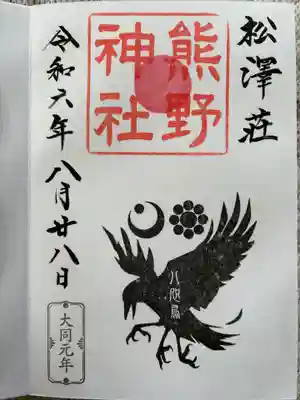 松澤荘
熊野
神社
八咫烏
令和六年八月廿八日
大同元年